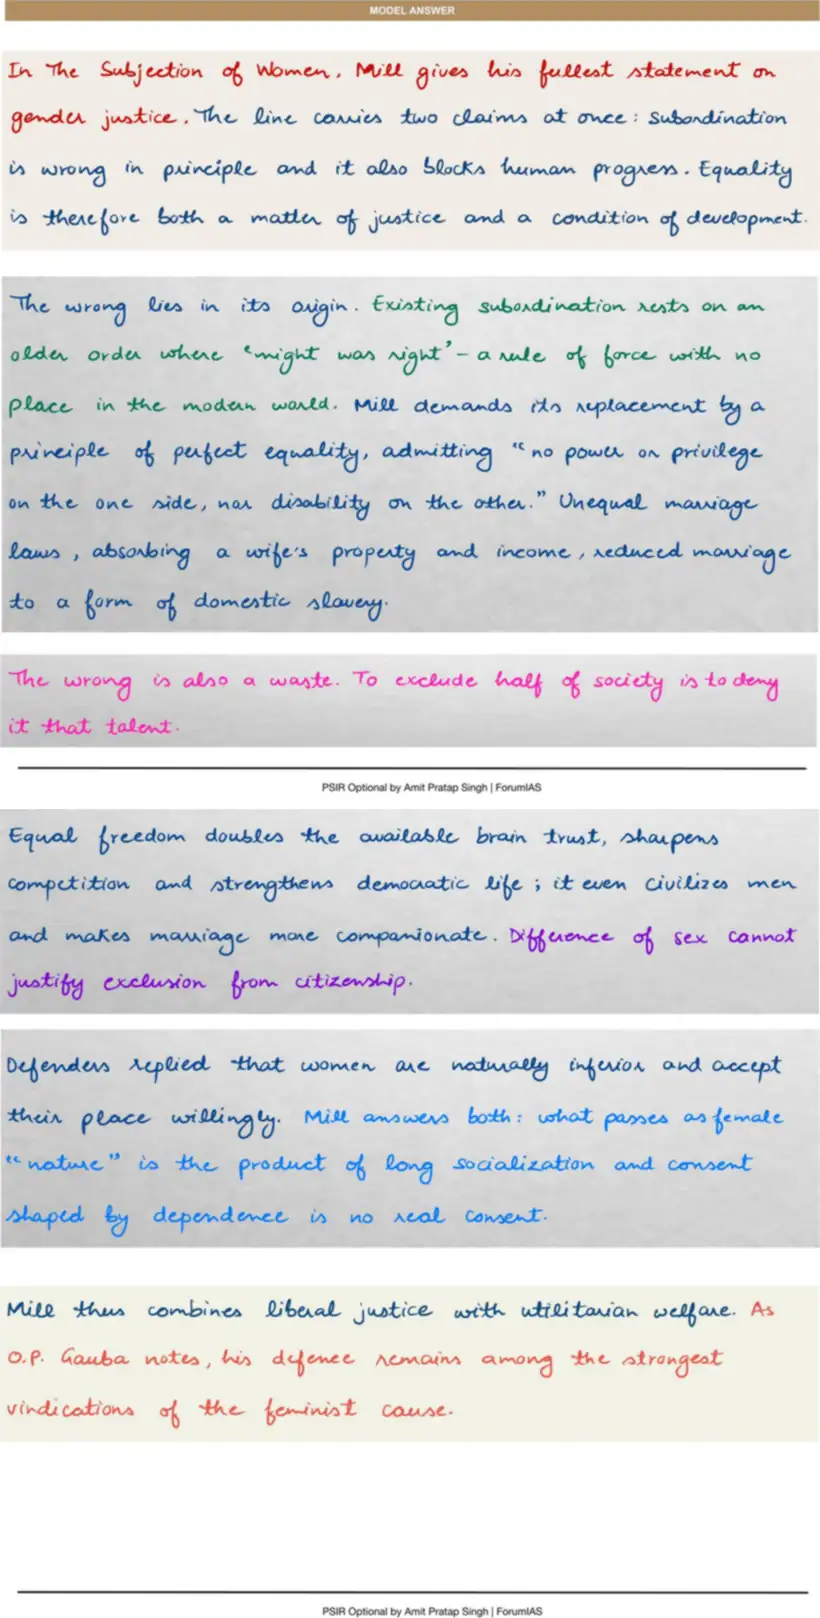 MODEL ANSWER
In The Subjection of Women, Mill gives his fullest statement on
gender justice. The line carries two claims at once: subordination
is wrong in principle and it also blocks human progress. Equality
is therefore both a matter of justice and a condition of development.
The wrong lies in its origin. Existing subordination rests on an
older order where 'might was right' – a rule of force with no
place in the modern world. Mill demands its replacement by a
principle of perfect equality, admitting "no power or privilege
on the one side, nor disability on the other." Unequal marriage
laws, absorbing a wife's property and income, reduced marriage
to a form of domestic slavery.
The wrong is also a waste. To exclude half of society is to deny
it that talent.
PSIR Optional by Amit Pratap Singh | ForumIAS
Equal freedom doubles the available brain trust, sharpens
competition and strengthens democratic life; it even civilizes men
and makes marriage more companionate. Difference of sex cannot
justify exclusion from citizenship.
Defenders replied that women are naturally inferior and accept
their place willingly. Mill answers both: what passes as female
"nature" is the product of long socialization and consent
shaped by dependence is no real consent.
Mill thus combines liberal justice with utilitarian welfare. As
O.P. Gauba notes, his defence remains among the strongest
vindications of the feminist cause.
PSIR Optional by Amit Pratap Singh | ForumIAS